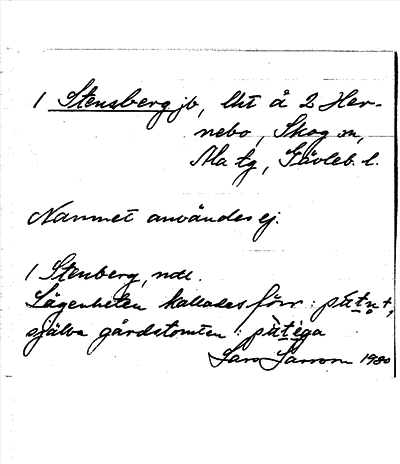 1 Stensberg jb, lht å 2 Her-
nebo, Skog sn,
Ala tg, Gävleb. l.
Namnet användes ej.
1 Stenberg, ndl.
Lägenheten kallades förr:
själva gårdstomten:
Lars Larsson 1980